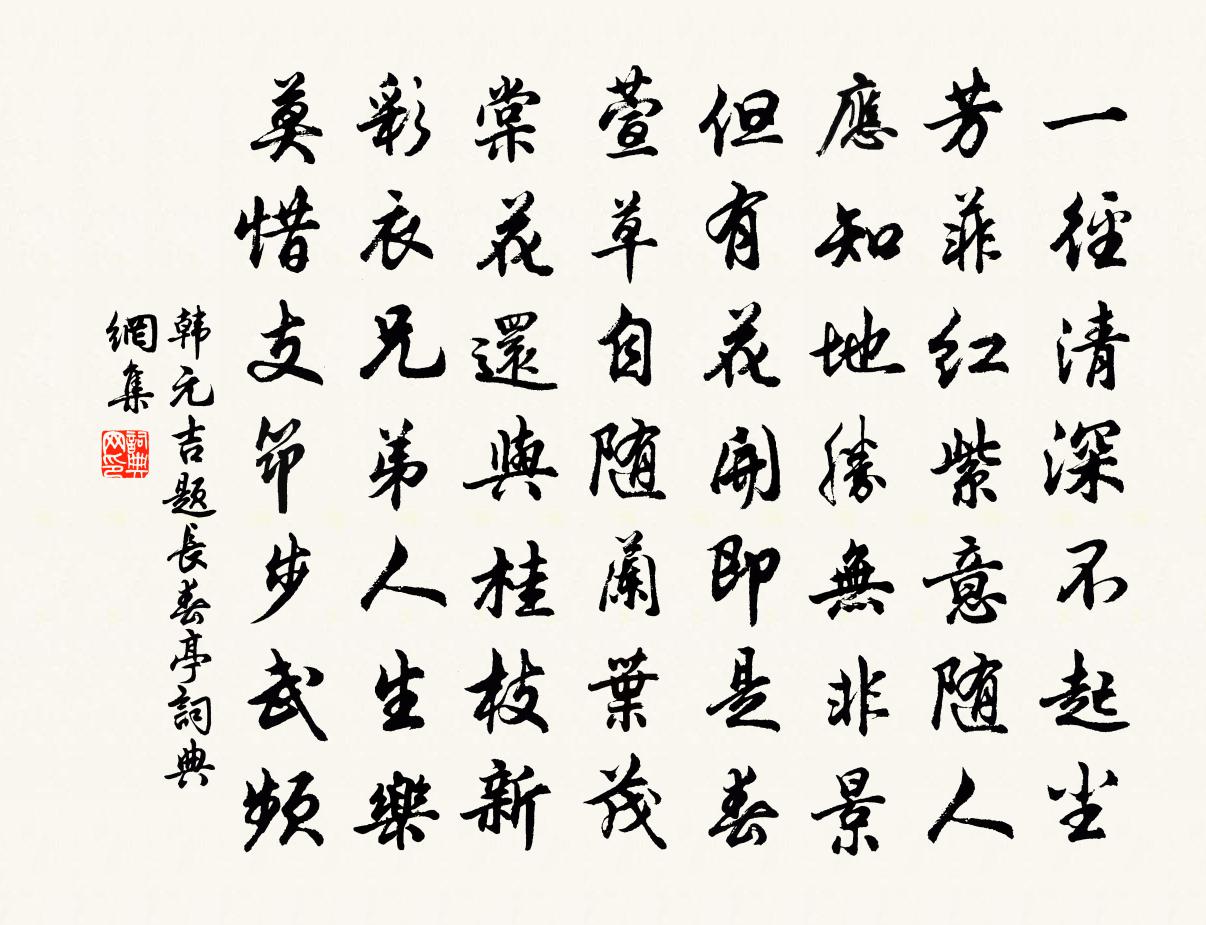 一徑清深不起尘
芳菲红紫意随人
應知地勝無非景
但有花開即是春
萱草自随蘭葉茂
棠花還與桂枝新
彩衣兄弟人生樂
莫惜支笻步武頻
韩元吉题長春亭詞典
網集
詞典
网印